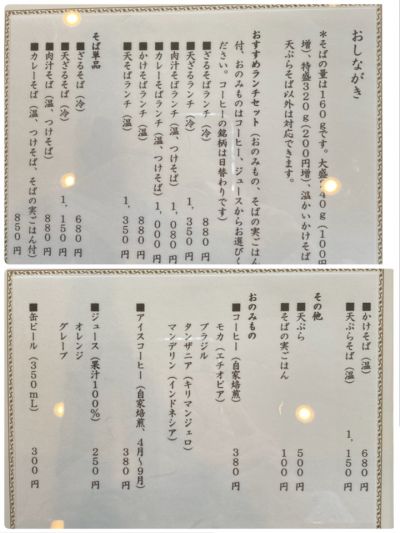 おしながき
＊そばの量は160gです。大盛240g（100円
増）、特盛320g（200円増）、温かいかけそば
天ぷらそば以外は対応できます。
おすすめランチセット（おのみもの、そばの実ごはん
付、おのみものはコーヒー、ジュースからお選びく
ださい。コーヒーの銘柄は日替わりです）
■ざるそばランチ（冷） 880円
■天ざるランチ（冷） 1,350円
■肉汁そばランチ（温、つけそば） 1,080円
■カレーそばランチ（温、つけそば） 1,000円
■かけそばランチ（温） 880円
■天そばランチ（温） 1,350円
そば単品
■ざるそば（冷） 680円
■天ざるそば（冷） 1,150円
■肉汁そば（温、つけそば） 880円
■カレーそば（温、つけそば、そばの実ごはん付） 850円
■かけそば（温） 680円
■天ぷらそば（温） 1,150円
その他
■天ぷら 500円
■そばの実ごはん 100円
おのみもの
■コーヒー（自家焙煎） 380円
モカ（エチオピア）
ブラジル
タンザニア（キリマンジェロ）
マンデリン（インドネシア）
■アイスコーヒー（自家焙煎、4月〜9月） 380円
■ジュース（果汁100％） 250円
オレンジ
グレープ
■缶ビール（350mL） 300円